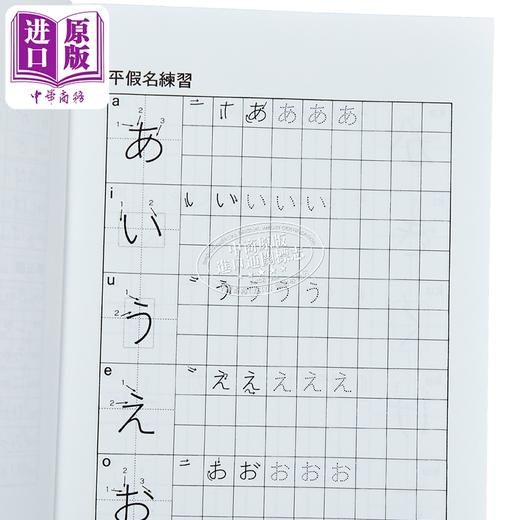 进口
原版
中华商务
平假名練習
a
1 2 3
あ あ あ あ あ あ
i
1 2
い い い い い い
u
1 2
う う う う う
e
1 2
え え え え え え
o
1 2 3
お お お お お お